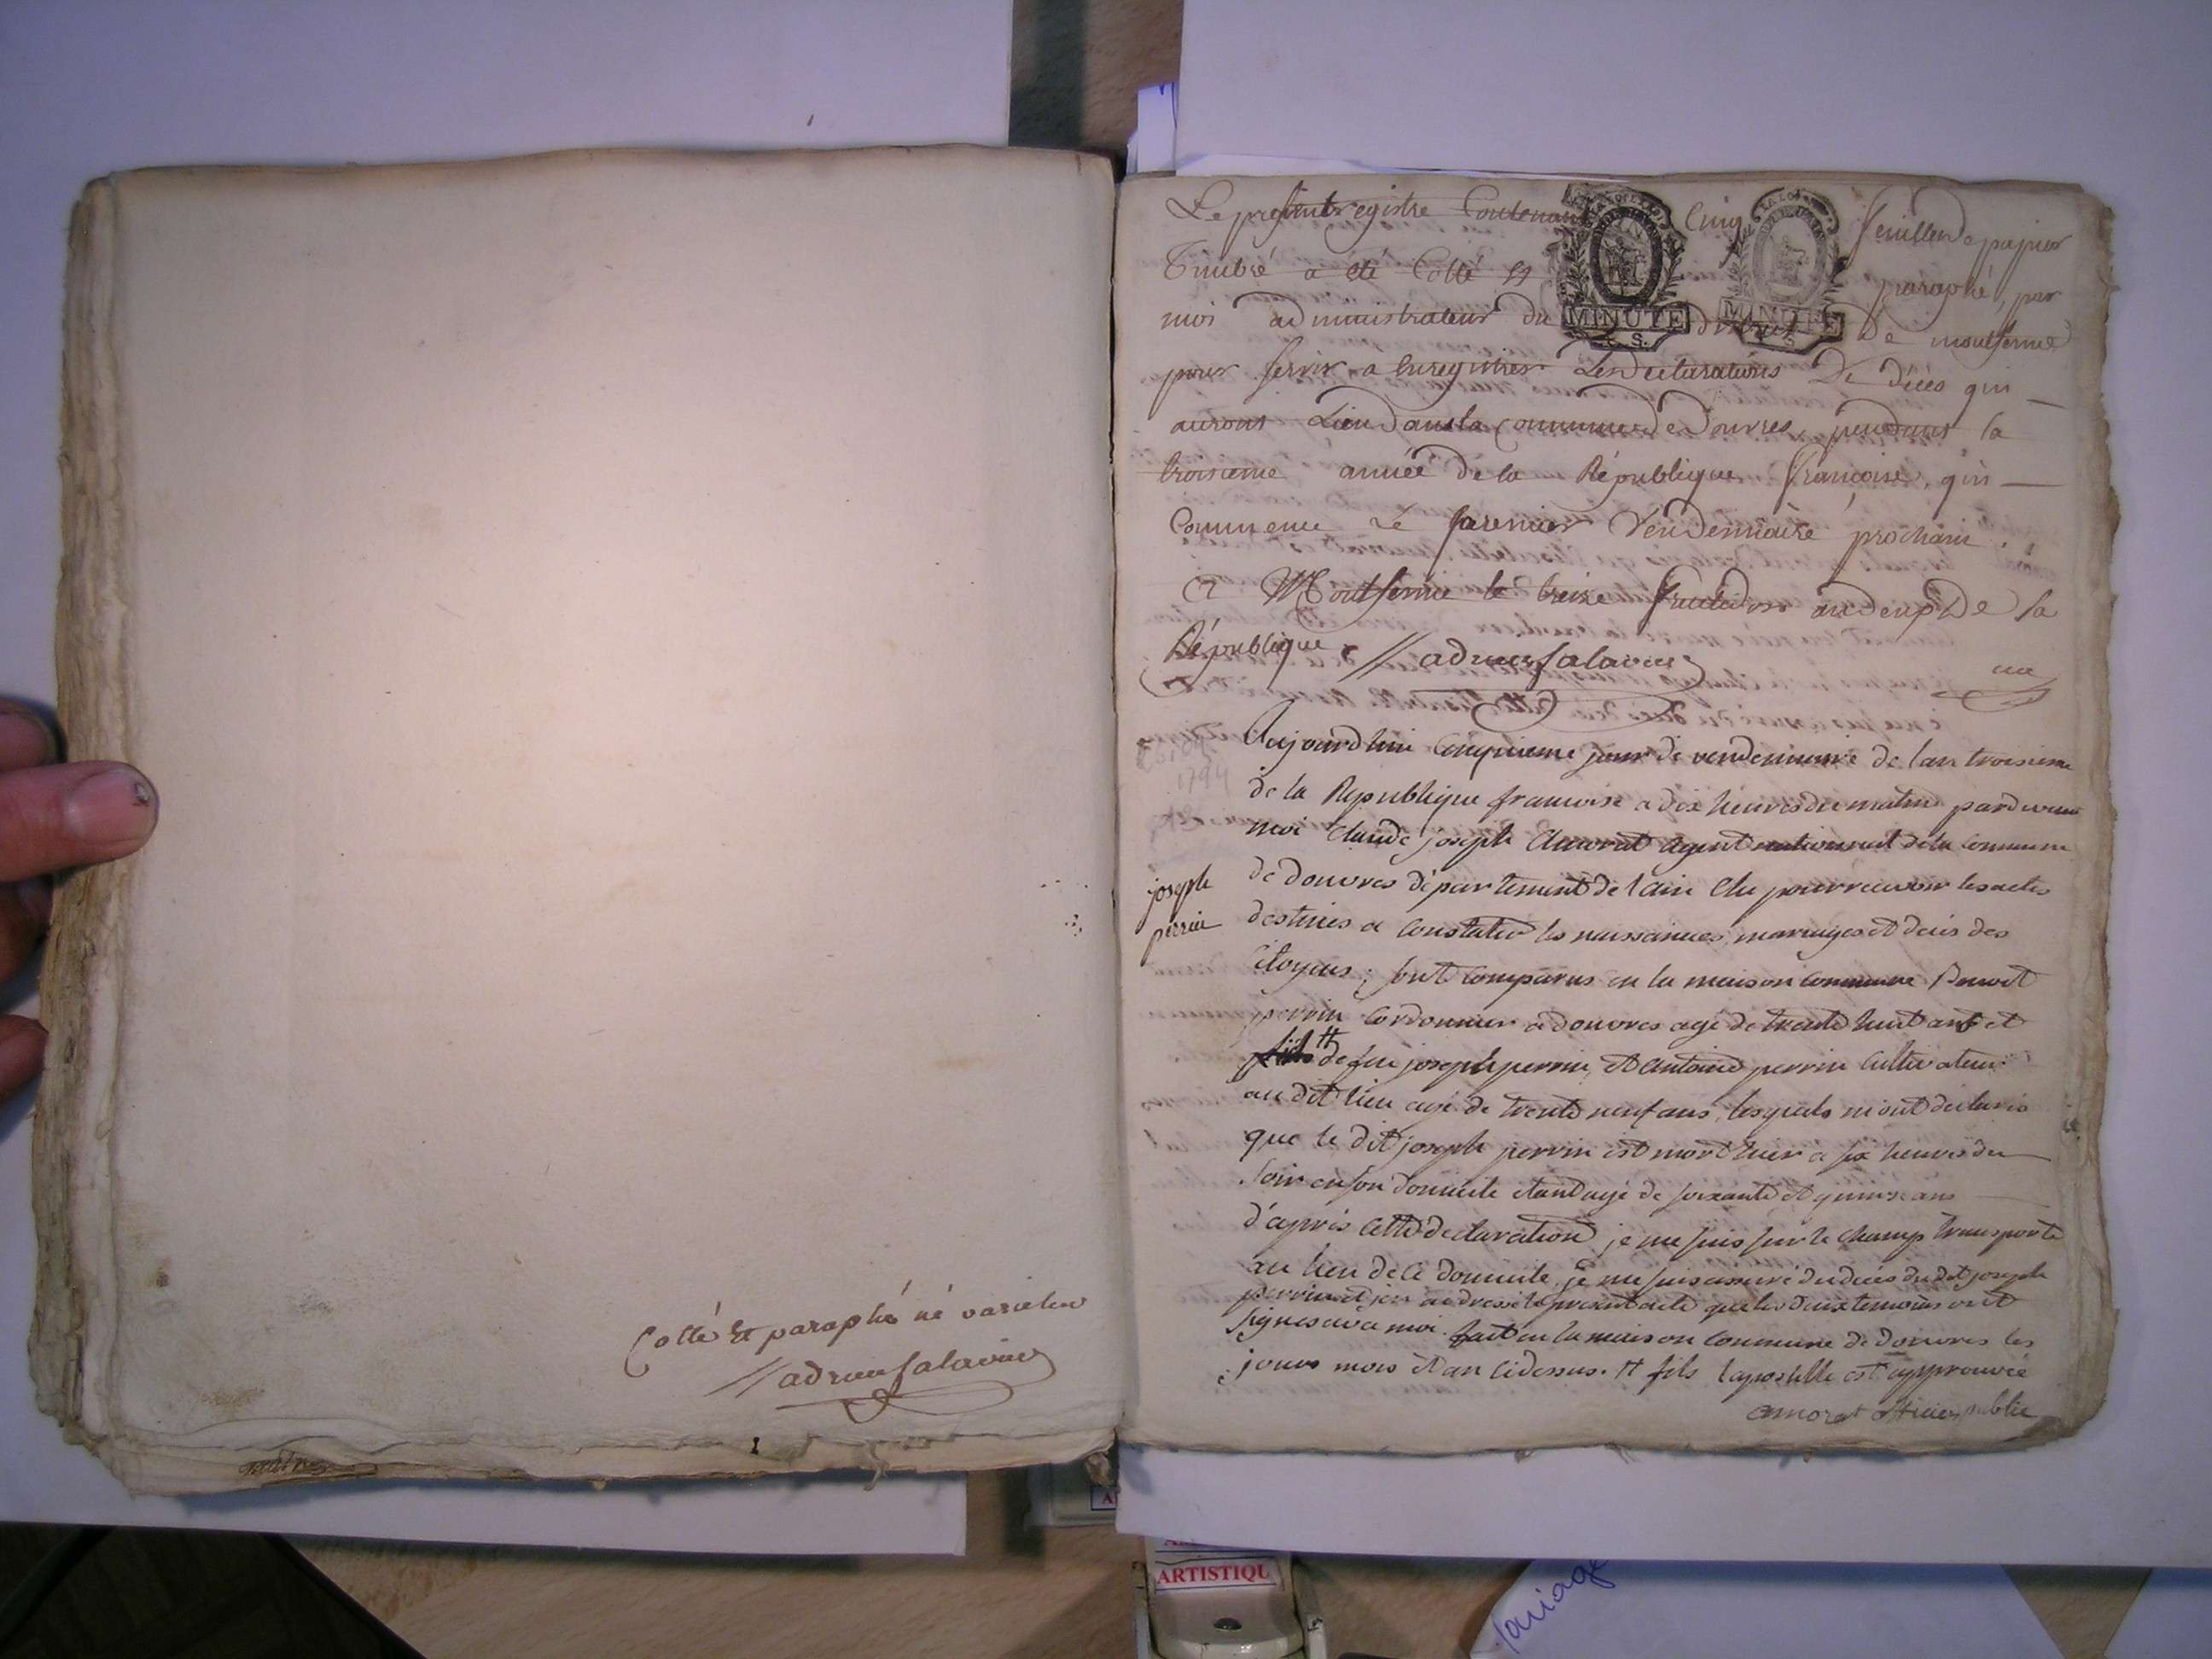 Cotté Et paraphé né varietur
adrien salavin
Le present registre Contenant Cinq feuilles de papier
Timbré a été Cotté Et paraphé, par
moi administrateur du district De montferme
pour servir a Enregistrer Les declarations De décès qui
auront Lieu dans la Commune de Douvres, pendant la
troisieme année de la République françoise, qui
Commence Le premier Vendemiaire prochain.
a Montferme le treize fructidor an deux De la
République. adrien salavin
une
MINUTE
MINUTE
1794
Aujourdhui cinquieme jour de vendemiaire de lan troisieme
de la Republique francoise a dix heures du matin pardevant
moi claude joseph amorat agent national de la commune
joseph
perrin
de douvres département de lain elu pour recevoir les actes
destinés a constater les naissances, mariages et decès des
citoyens; sont comparus en la maison commune Benoit
perrin cordonnier a douvres agé de trente huit ans et
fils # de feu joseph perrin, et antoine perrin cultivateur
au dit lieu agé de trente neuf ans, lesquels m'ont declaré
que le dit joseph perrin est mort hier a six heures du
soir en son domicile etant agé de soixante et quinze ans
d'après cette declaration je me suis sur le champ transporté
au lieu de ce domicile, je me suis assuré du decès du dit joseph
perrin et j'en ai dressé le present acte que les deux temoins ont
signés avec moi. fait en la maison commune de douvres les
jours mois et an cidessus. # fils lapostille est approuvée
amorat officier public
ARTISTIQU
mariage